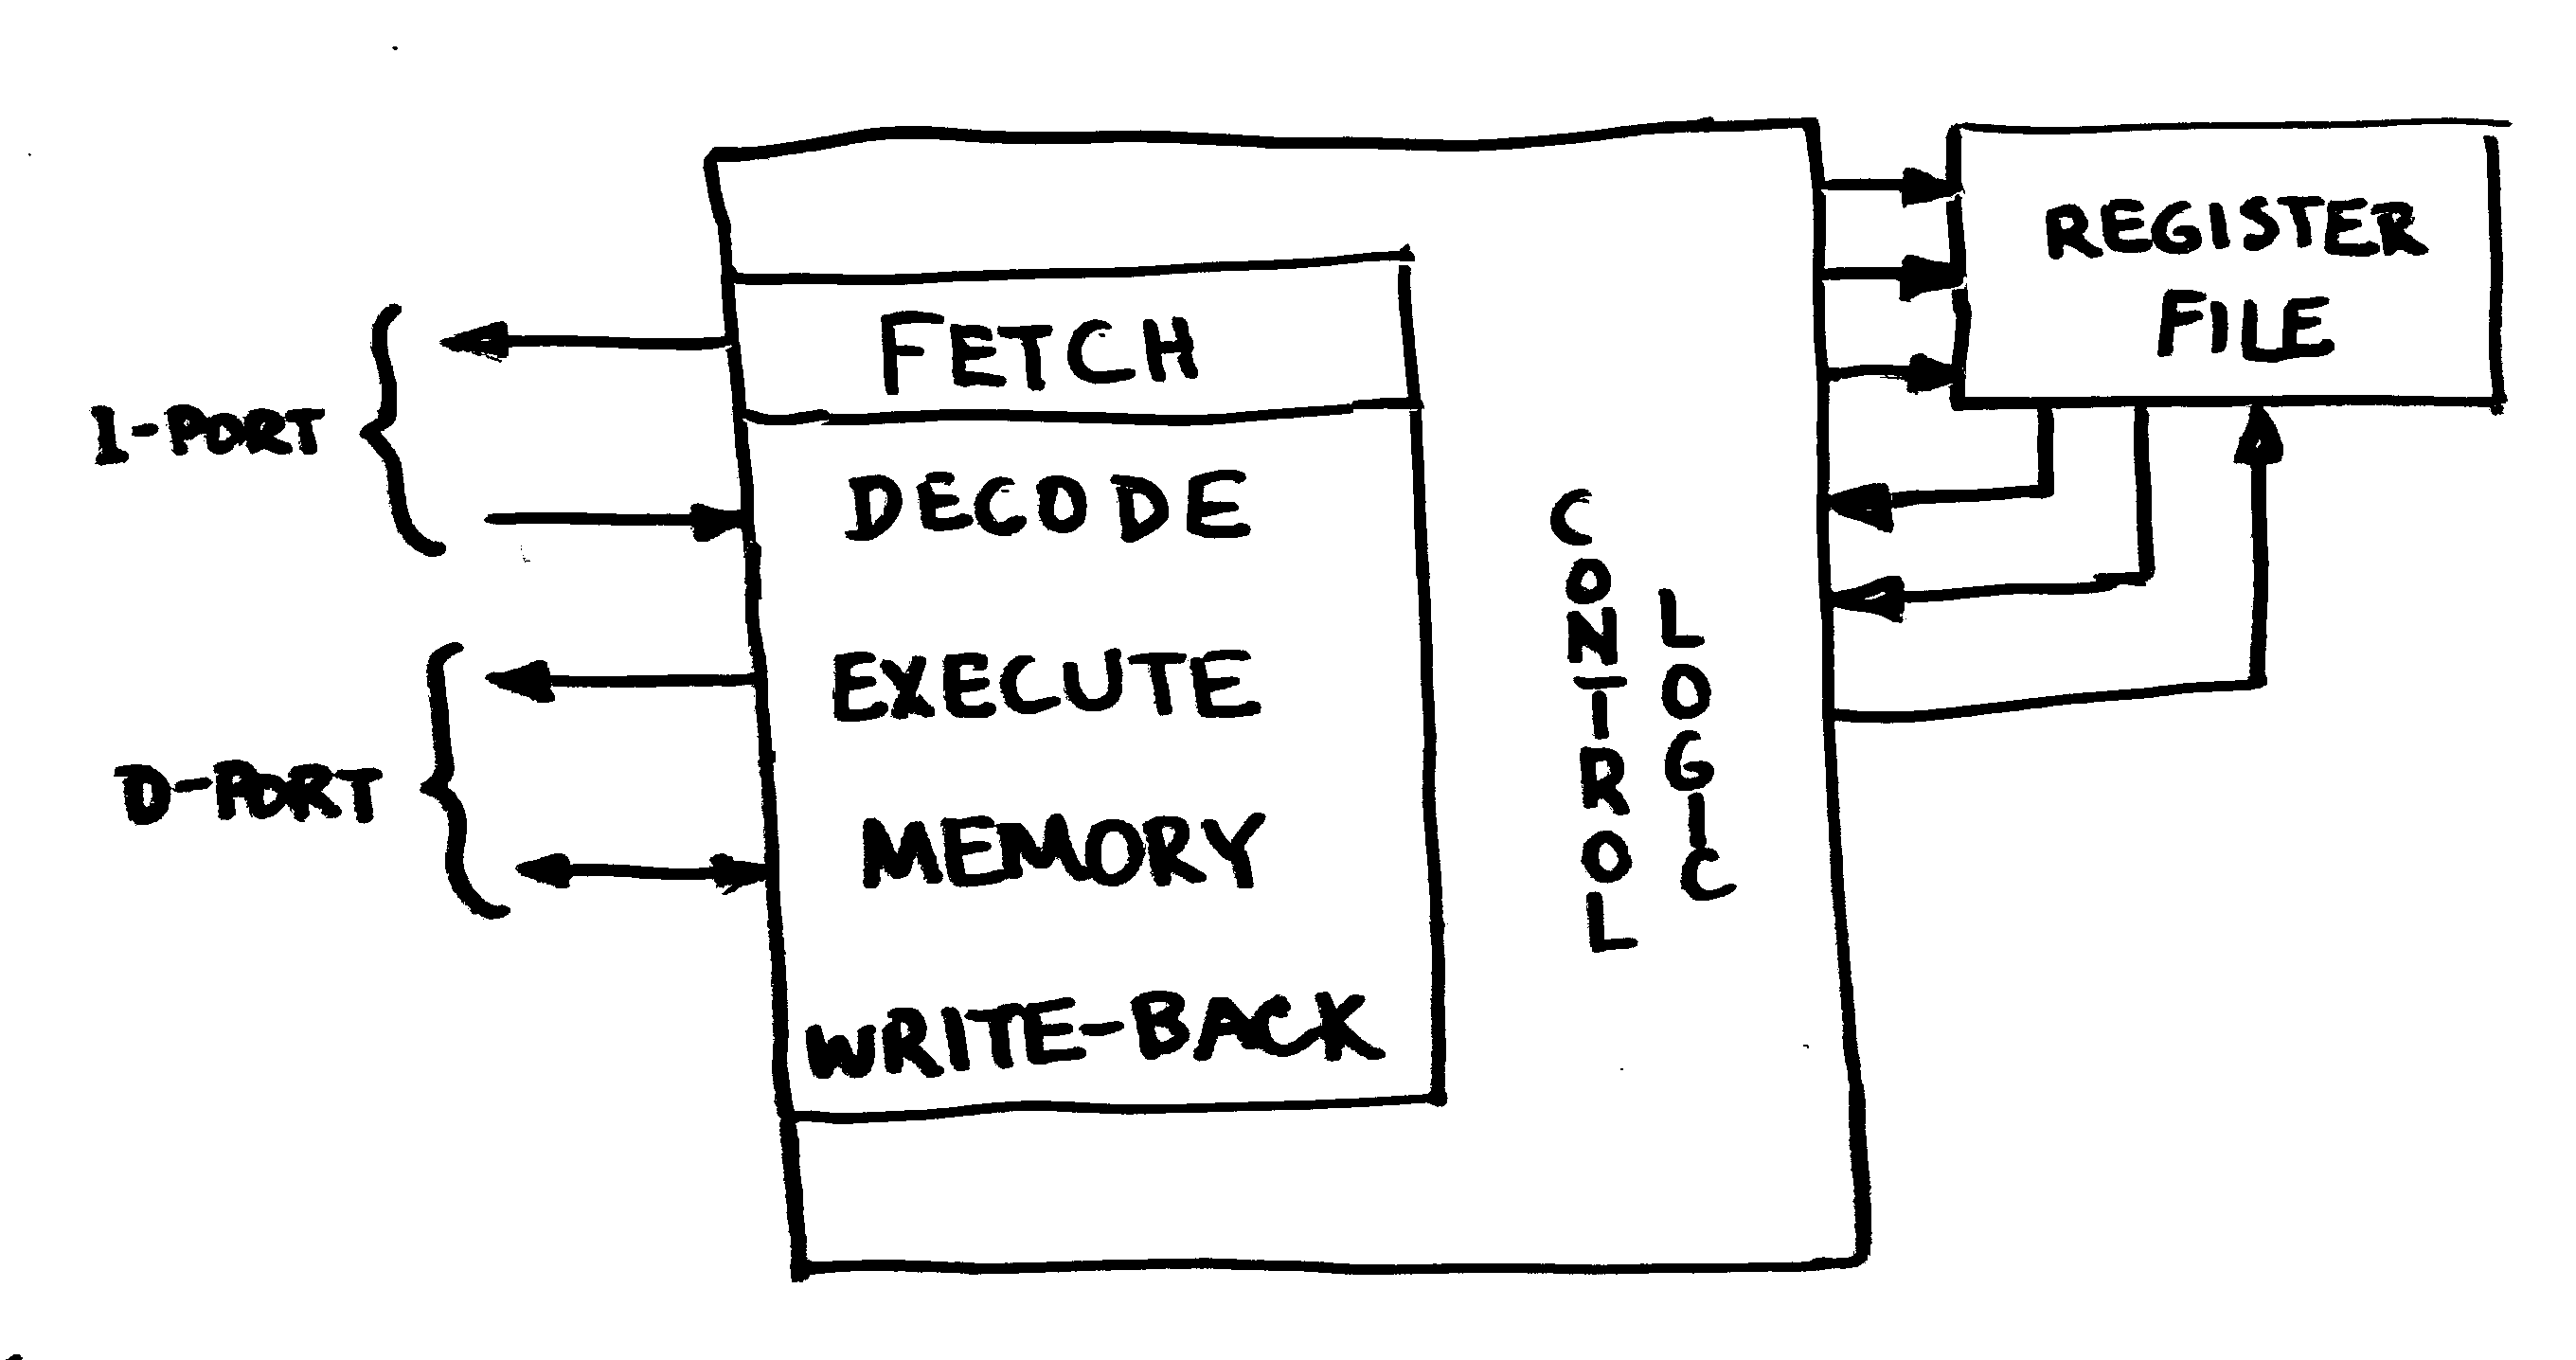 I-PORT
D-PORT
FETCH
DECODE
EXECUTE
MEMORY
WRITE-BACK
CONTROL
LOGIC
REGISTER
FILE